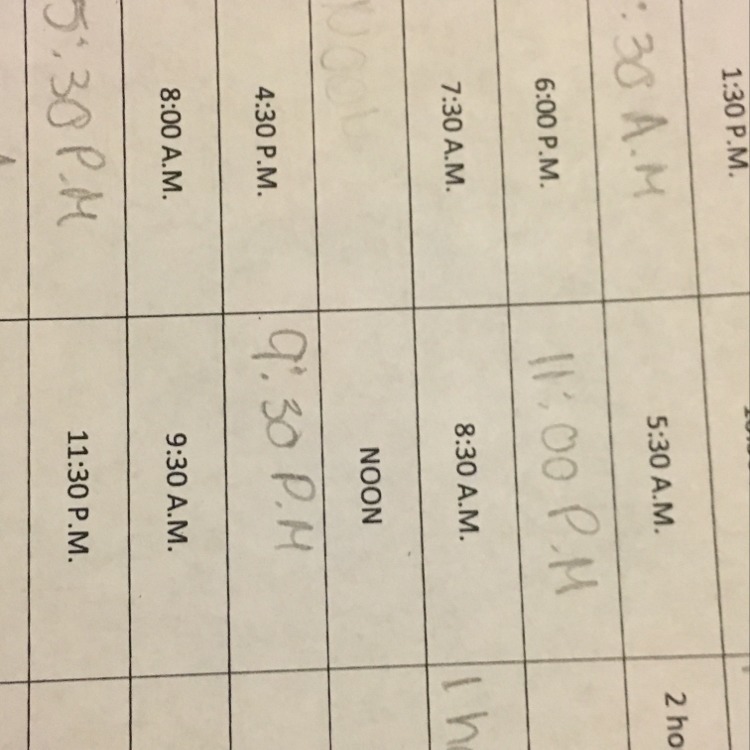 1:30 P.M.
:30 A.M 5:30 A.M. 2 ho
6:00 P.M. 11:00 P.M
7:30 A.M. 8:30 A.M. 1 h
NOON
4:30 P.M. 9:30 P.M
8:00 A.M. 9:30 A.M.
5:30 P.M 11:30 P.M.